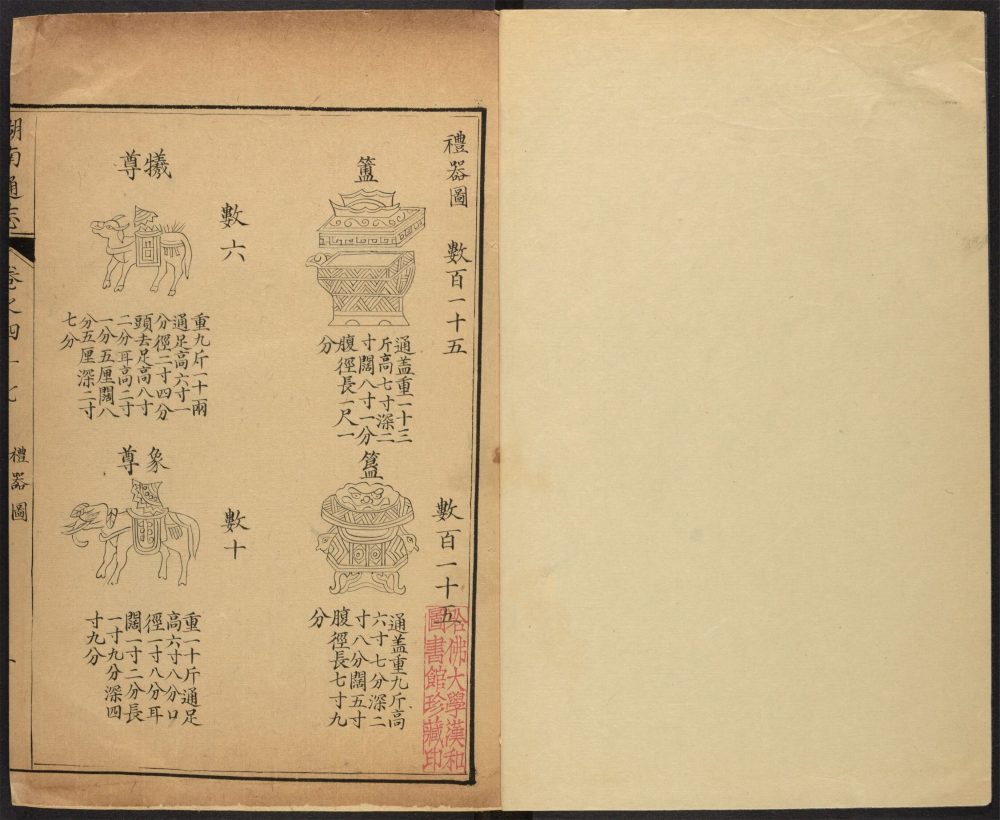 禮器圖
簠
數百一十五
通盖重一十三
斤高七寸深二
寸闊八寸一分
腹徑長一尺一
分
簋
數百一十五
通盖重九斤高
六寸七分深二
寸八分闊五寸
腹徑長七寸九
分
犧尊
數六
重九斤一十兩
通足高六寸一
分徑二寸四分
頭去足高八寸
二分耳高二寸
一分五厘闊八
分五厘深二寸
七分
象尊
數十
重一十斤通足
高六寸八分口
徑一寸八分耳
闊一寸二分長
一寸九分深四
寸九分
湖南通志
卷之四十七
禮器圖
哈佛大學漢和
圖書館珍藏印